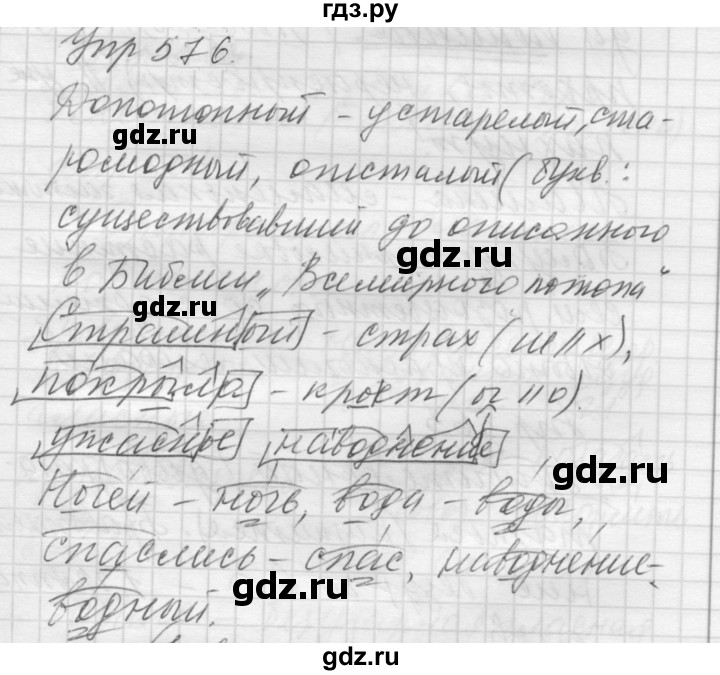 гдз.ру
Упр 576.
Допотопный - устарелый, ста-
ромодный, отсталый (букв.:
существовавший до описанного
в Библии „Всемирного потопа"
Страшный - страх (ш || х),
покрыла - кроет (ы || о).
ужасные наводнение
Ночей - ночь, вода - воды,
спаслись - спас, наводнение -
водный.
gdz.ru
gdz.ru
gdz.ru
gdz.ru
gdz.ru
gdz.ru
gdz.ru
gdz.ru
gdz.ru